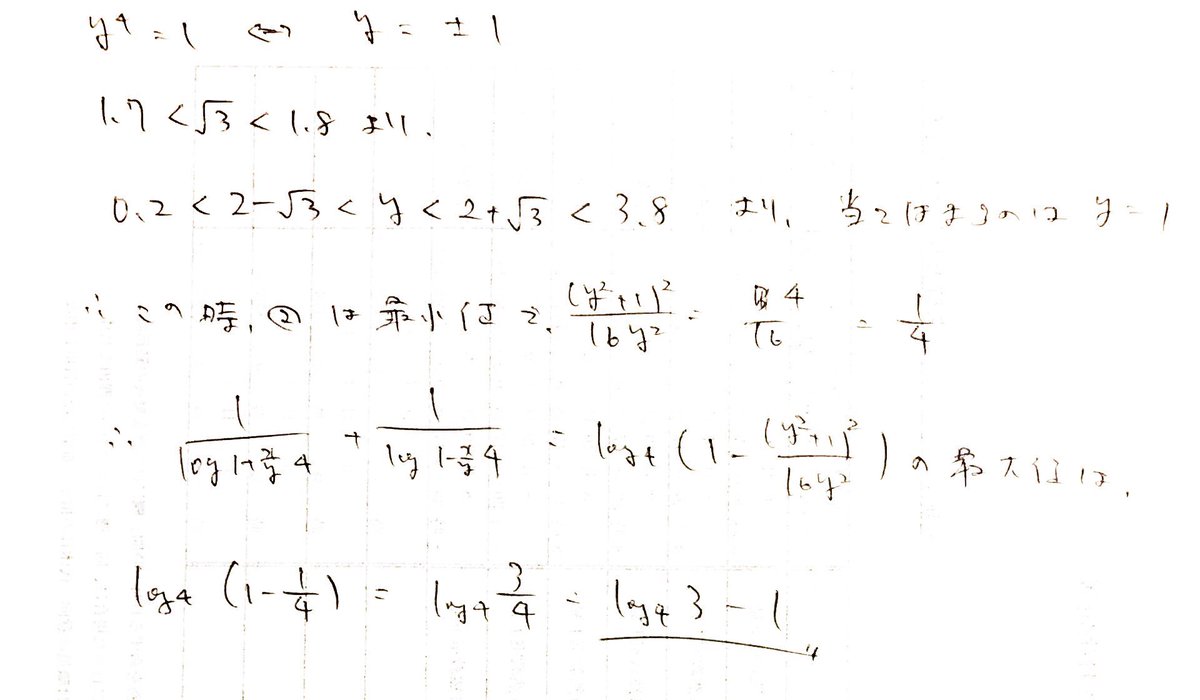 y⁴ = 1 ⇔ y = ±1
1.7 < √3 < 1.8 より.
0.2 < 2-√3 < y < 2+√3 < 3.8 より, 当てはまるのは y = 1
∴ この時, ② は最小値で, (y²+1)²/16y² = 4/16 = 1/4
∴ 1/log 1+x/y 4 + 1/log 1-x/y 4 = log₄ (1 - (y²+1)²/16y²) の最大値は,
log₄ (1-1/4) = log₄ 3/4 = log₄ 3 - 1